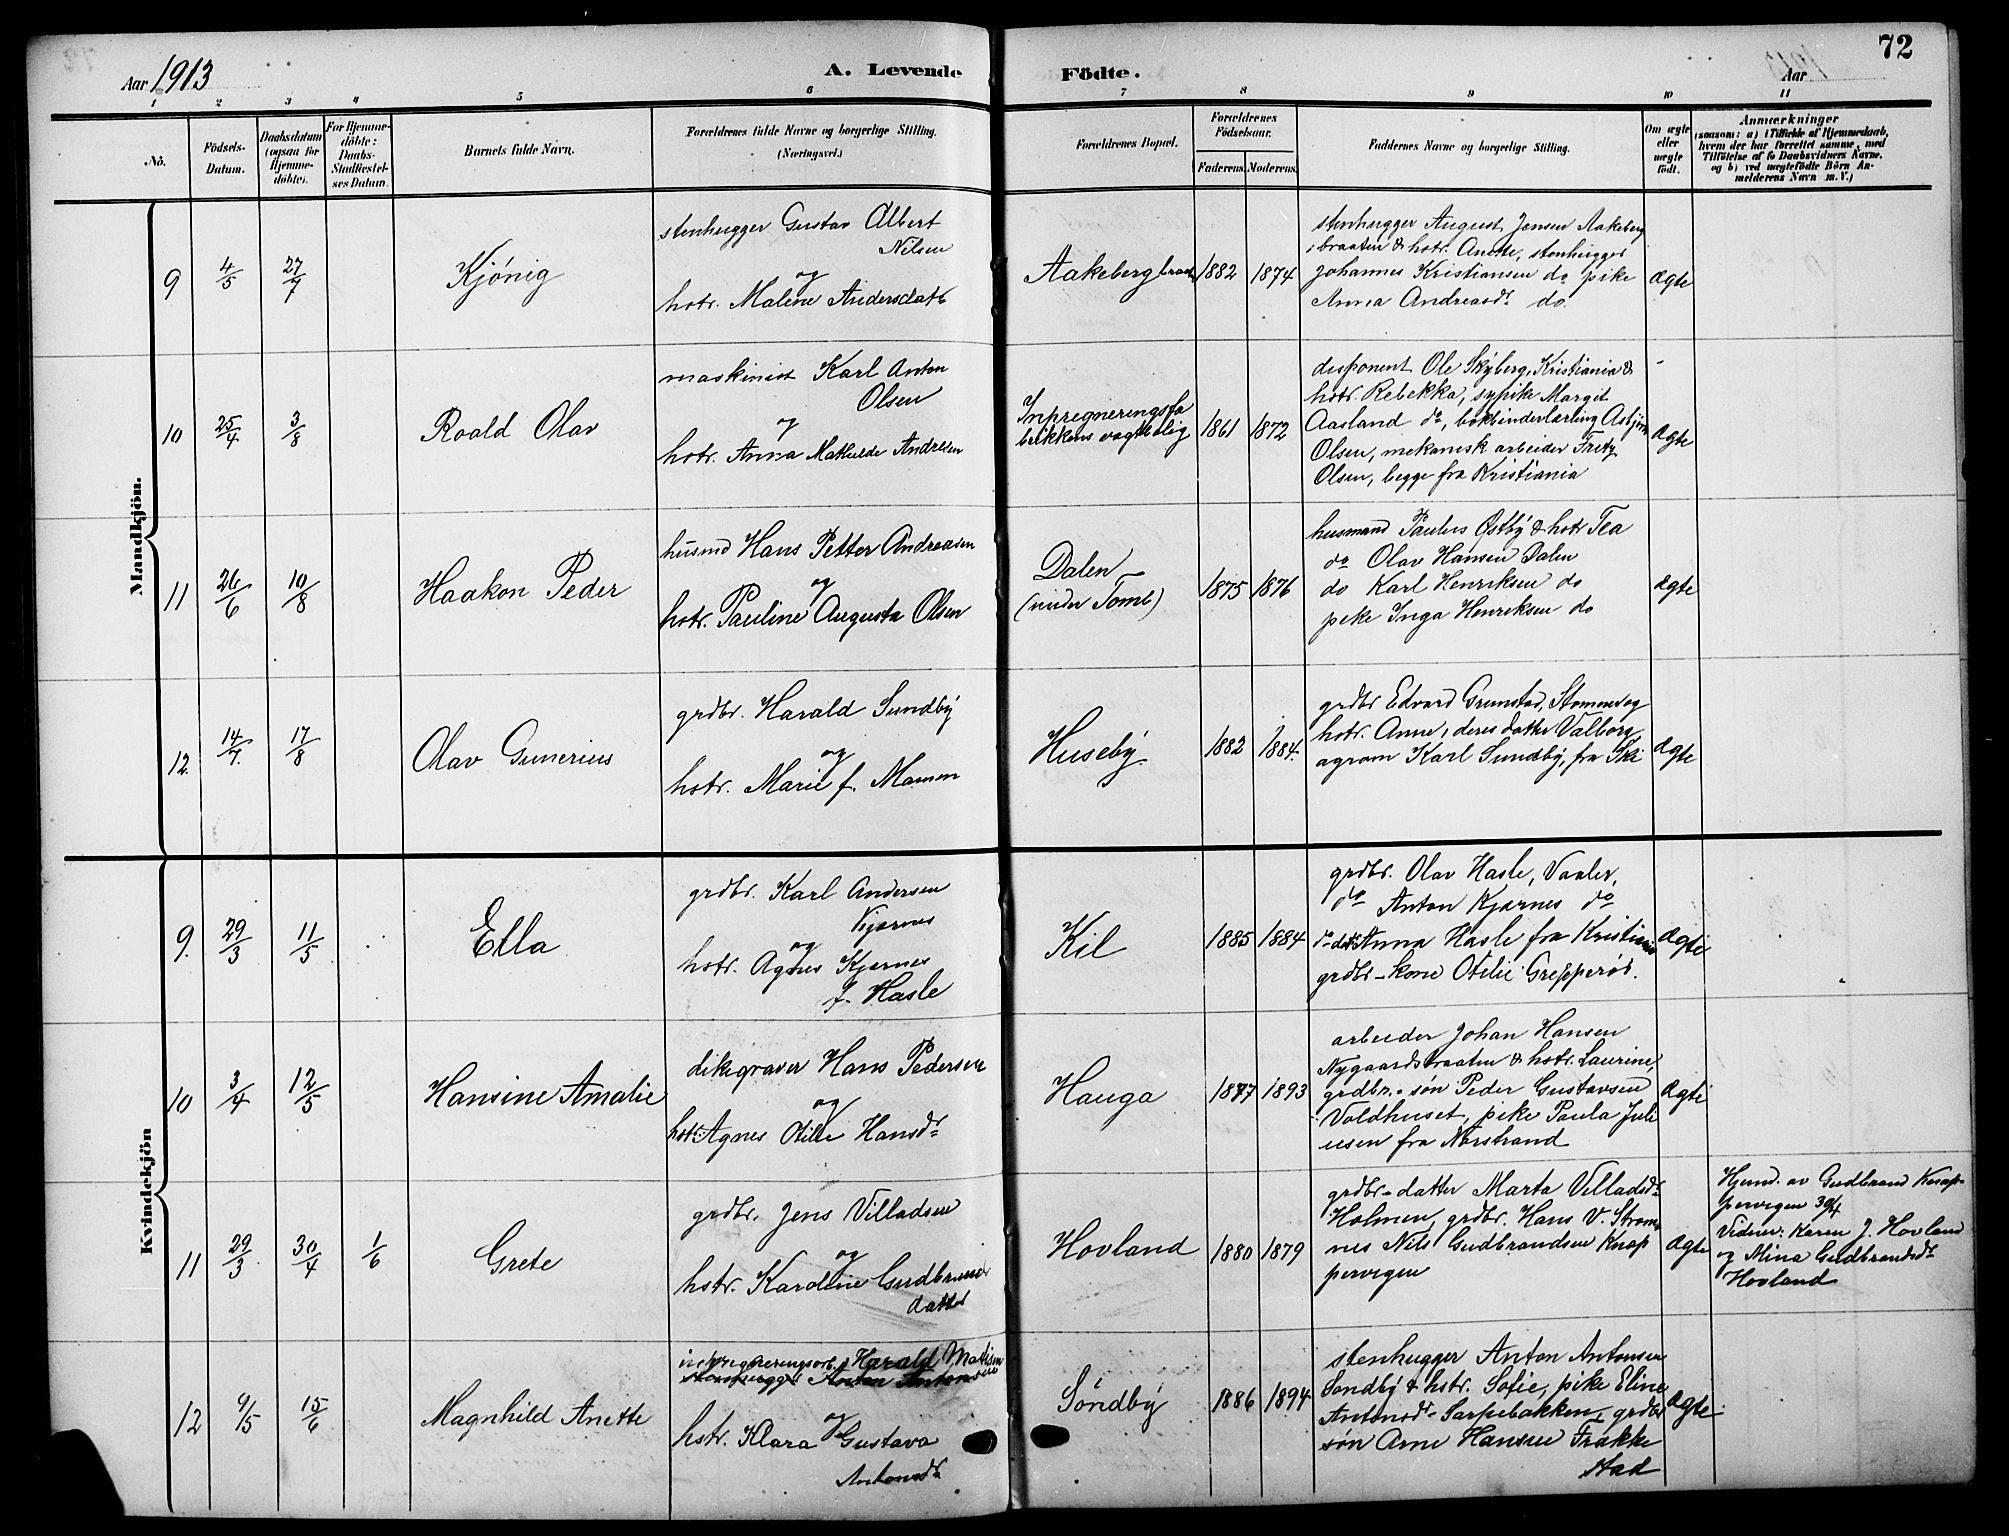 72
Aar 1913
A. Levende Födte.
Aar
1 2 3 4 5 6 7 8 9 10 11
No.
Födsels-
Datum.
Daabsdatum
(ogsaa for
Hjemme-
döbte).
For Hjemme-
döbte:
Daabs-
Stadfæstel-
ses Datum.
Barnets fulde Navn.
Forældrenes fulde Navne og borgerlige Stilling.
(Næringsvei.)
Forældrenes Bopæl.
Forældrenes
Födselsaar.
Faderens. Moderens.
Faddernes Navne og borgerlig Stilling.
Om ægte
eller
uægte
födt.
Anmærkninger
(saasom: a) i Tilfælde af Hjemmedaab,
hvem der har forrettet samme, med
Tilföielse af to Daabsvidners Navne,
og b) ved uægtefödte Börn An-
melderens Navn m. V.)
Mandkjön.
9
4/5
27/7
Kjönig
stenhugger Gustav Albert
Nilsen
og
hstr. Malene Andersdatr
Aakebergbraaten
1882 1874
stenhugger August Jensen Aakeberg
braaten & hstr. Anette, stenhugger
Johannes Kristiansen do pike
Anna Andreasdr do.
ægte
10
25/4
3/8
Roald Olav
maskinist Karl Anton
Olsen
og
hstr. Anna Mathilde Andresen
Inpregneringsfa
brikkens vagtbolig
1861 1872
disponent Ole Skyberg, Kristiania &
hstr. Rebekka, sypike Margit
Aasland do, bokbinderlærling Asbjörn
Olsen, mekanisk arbeider Fritz
Olsen, begge fra Kristiania
ægte
11
26/6
10/8
Haakon Peder
husmd Hans Petter Andreasen
og
hstr. Pauline Augusta Olsen
Dalen
(under Tomb)
1875 1876
husmand Paulus Østby & hstr Tea
do Olav Hansen Dalen
do Karl Henriksen do
pike Inga Henriksen do
ægte
12.
14/7
17/8
Olav Gunerius
grdbr. Harald Sundby
og
hstr. Marie f. Mamen
Huseby
1882 1884.
grdbr Edvard Grimstad, Stomnes og
hstr. Anne, deres datter Valborg
agrom Karl Sundby, fra Ski
ægte
Kvindekjön
9.
29/3
11/5
Ella
grdbr. Karl Andersen
Kjærnes
og
hstr. Agnes Kjærnes
f. Hasle
Kil
1885 1884
grdbr. Olav Hasle, Vaaler,
do Anton Kjærnes do
do datr Anna Hasle fra Kristiania
grdbr-kone Otilie Grepperöd.
ægte
10
3/4
12/5
Hansine Amalie
dikegraver Hans Pedersen
og
hstr. Agnes Otilie Hansdr
Hauga
1877 1893
arbeider Johan Hansen
Nygaardsbraaten & hstr. Laurine,
grdbr.-sön Peder Gustavsen
Voldhuset, pike Paula Juli
usen fra Norstrand
ægte
11
29/3
30/4
1/6
Grete
grdbr. Jens Villadsen
og
hstr. Karoline Gudbrands
datter
Hovland
1880 1879
grdbr-datter Marta Villadsdr
Holmen, grdbr. Hans V. Strom
nes Nils Gudbrandsen Knap
pervigen
ægte
Hjemd. av Gudbrand Knap-
pervigen 30/4
Vidner: Karen J. Hovland
og Mina Guldbrandsdr
Hovland
12
9/5
15/6
Magnhild Anette
inpregneringsarb. Harald Matisen
stenhugger Anton Antonsen
og
hstr. Klara Gustava
Antonsdr
Söndby
1886 1894
stenhugger Anton Antonsen
Sondby & hstr. Sofie, pike Eline
Antonsdr Sarpebakken, grdbr
sön Arne Hansen Frakke
stad
ægte